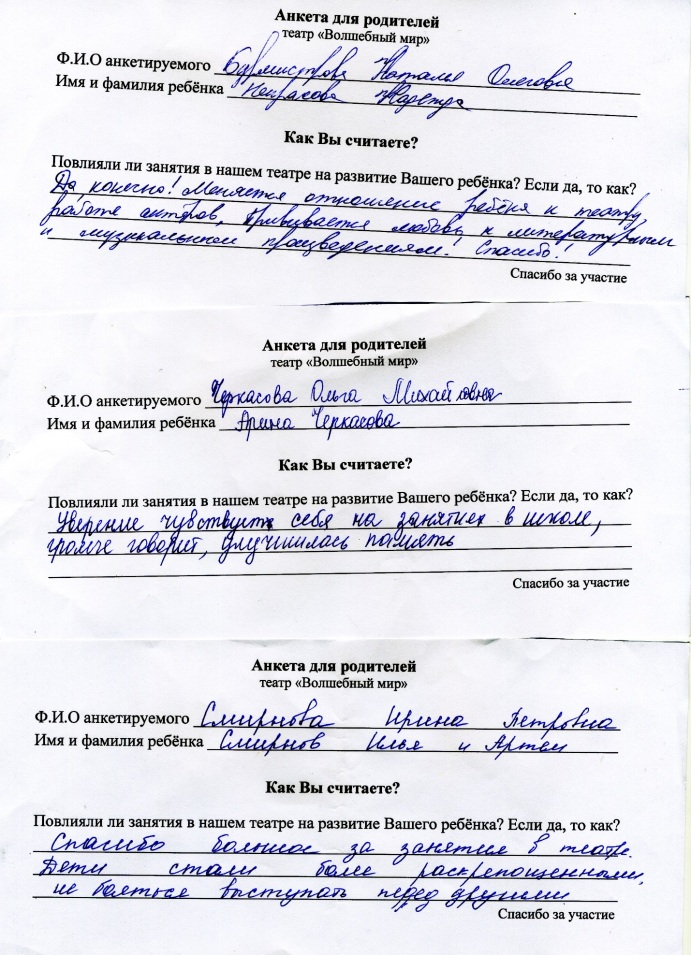 Анкета для родителей
театр «Волшебный мир»
Ф.И.О анкетируемого Бурмистрова Наталья Олеговна
Имя и фамилия ребёнка Некрасова Надежда
Как Вы считаете?
Повлияли ли занятия в нашем театре на развитие Вашего ребёнка? Если да, то как?
Да, конечно! Меняется отношение ребёнка к театру,
работе актёров, прививается любовь к литературным
и музыкальным произведениям! Спасибо!
Спасибо за участие
Анкета для родителей
театр «Волшебный мир»
Ф.И.О анкетируемого Черкасова Ольга Михайловна
Имя и фамилия ребёнка Арина Черкасова
Как Вы считаете?
Повлияли ли занятия в нашем театре на развитие Вашего ребёнка? Если да, то как?
Уверение чувствует себя на занятиех в школе,
громче говорит, улучшилась память
Спасибо за участие
Анкета для родителей
театр «Волшебный мир»
Ф.И.О анкетируемого Смирнова Ирина Петровна
Имя и фамилия ребёнка Смирнов Илья и Артем
Как Вы считаете?
Повлияли ли занятия в нашем театре на развитие Вашего ребёнка? Если да, то как?
Спасибо большое за занятия в театре.
Дети стали более раскрепощенными,
не бояться выступать перед другими
Спасибо за участие